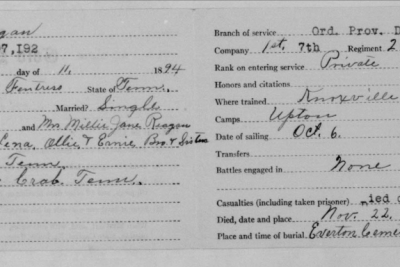 7,192
day of 11. 1894
Fentress State of Tenn.
Married? Single
and Mrs Millie Jane Reagan
Lena, Ollie & Ernie Bro. & Sisters
Tenn.
Crab. Tenn.
Branch of service Ord. Prov. D
Company 1st. 7th Regiment 2
Rank on entering service Private
Honors and citations
Where trained Knoxville
Camps Upton
Date of sailing Oct. 6.
Transfers
Battles engaged in None
Casualties (including taken prisoner) ied
Died, date and place Nov. 22.
Place and time of burial Everton Ceme